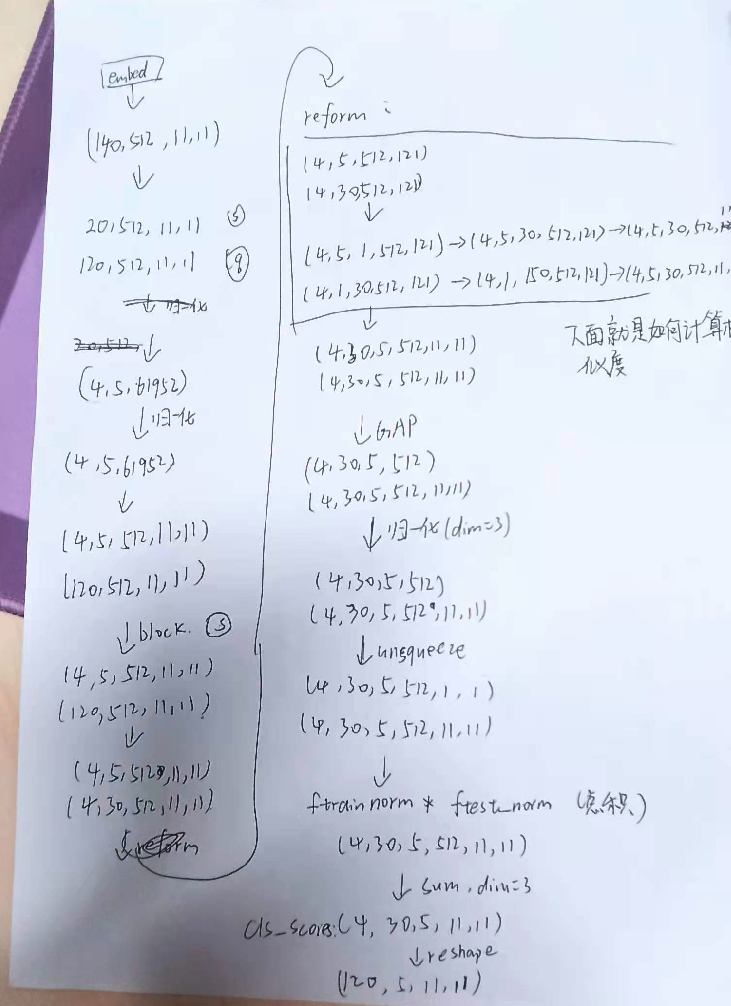 embed
↓
(140,512,11,11)
↓
20,512,11,11 ⓢ
120,512,11,11 ⓠ
↓ 归一化
20,512, ↓
(4,5,61952)
↓归一化
(4,5,61952)
↓
(4,5,512,11,11)
(120,512,11,11)
↓block. ⓢ
(4,5,512,11,11)
(120,512,11,11)
↓
(4,5,512,11,11)
(4,30,512,11,11)
↓reform
reform:
(4,5,512,121)
(4,30,512,121)
↓
(4,5,1,512,121)→(4,5,30,512,121)→(4,5,30,512,
(4,1,30,512,121)→(4,1,150,512,121)→(4,5,30,512,11,
↓
(4,30,5,512,11,11)
(4,30,5,512,11,11)
下面就是如何计算相
似度
↓GAP
(4,30,5,512)
(4,30,5,512,11,11)
↓归一化(dim=3)
(4,30,5,512)
(4,30,5,512,11,11)
↓unsqueeze
(4,30,5,512,1,1)
(4,30,5,512,11,11)
↓
ftrainnorm * ftest_norm (点积)
(4,30,5,512,11,11)
↓sum,dim=3
cls_scores:(4,30,5,11,11)
↓reshape
(120,5,11,11)